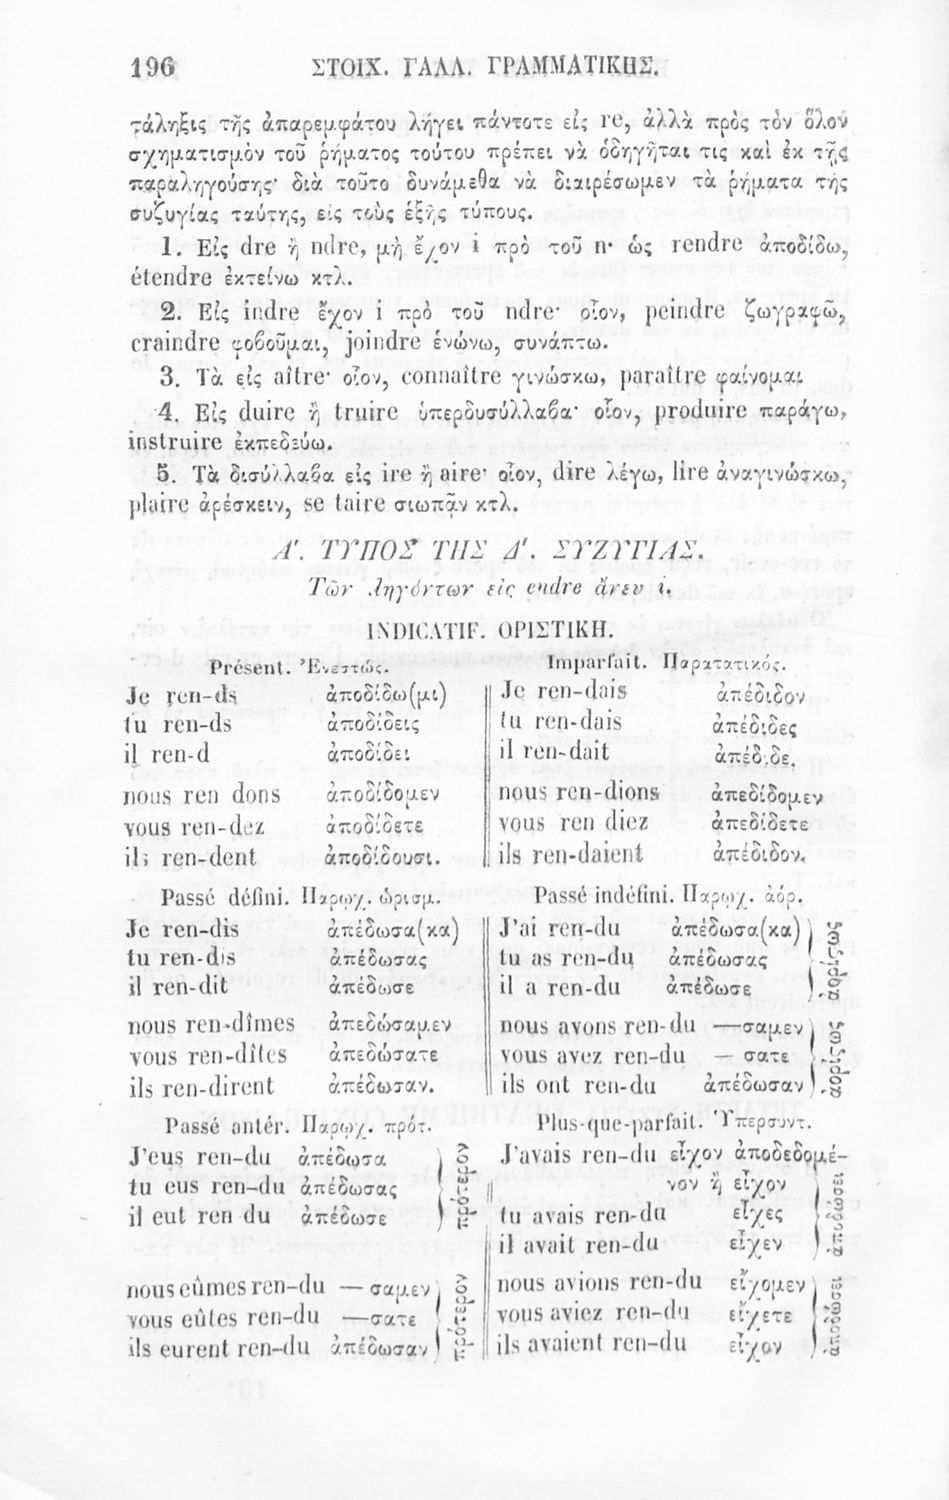 196 ΣΤΟΙΧ. ΓΑΛΛ. ΓΡΑΜΜΑΤΙΚΗΣ.
τάληξις τῆς ἀπαρεμφάτου λήγει πάντοτε εἰς re, ἀλλὰ πρὸς τὸν ὅλον
σχηματισμὸν τοῦ ῥήματος τούτου πρέπει νὰ ὁδηγῆται τις καὶ ἐκ τῆς
παραληγούσης· διὰ τοῦτο δυνάμεθα νὰ διαιρέσωμεν τὰ ῥήματα τῆς
συζυγίας ταύτης, εἰς τοὺς ἑξῆς τύπους.
1. Εἰς dre ἢ ndre, μὴ ἔχον i πρὸ τοῦ n· ὡς rendre ἀποδίδω,
étendre ἐκτείνω κτλ.
2. Εἰς indre ἔχον i πρὸ τοῦ ndre· οἷον, peindre ζωγραφῶ,
craindre φοβοῦμαι, joindre ἑνώνω, συνάπτω.
3. Τὰ εἰς aître· οἷον, connaître γινώσκω, paraître φαίνομαι
4. Εἰς duire ἢ truire ὑπερδυσύλλαβα· οἷον, produire παράγω,
instruire ἐκπεδεύω.
5. Τὰ δισύλλαβα εἰς ire ἢ aire· οἷον, dire λέγω, lire ἀναγινώσκω,
plaire ἀρέσκειν, se taire σιωπᾷν κτλ.
Α'. ΤΥΠΟΣ ΤΗΣ Δ'. ΣΥΖΥΓΙΑΣ.
Τῶν ληγόντων εἰς endre ἄνευ i.
INDICATIF. ΟΡΙΣΤΙΚΗ.
Présent. Ἐνεστώς.
Je ren-ds ἀποδίδω(μι)
tu ren-ds ἀποδίδεις
il ren-d ἀποδίδει
nous ren dons ἀποδίδομεν
vous ren-dez ἀποδίδετε
ils ren-dent ἀποδίδουσι.
Imparfait. Παρατατικός.
Je ren-dais ἀπέδιδον
tu ren-dais ἀπέδιδες
il ren-dait ἀπέδιδε.
nous ren-dions ἀπεδίδομεν
vous ren diez ἀπεδίδετε
ils ren-daient ἀπέδιδον.
Passé défini. Παρῳχ. ὡρισμ.
Je ren-dis ἀπέδωσα(κα)
tu ren-dis ἀπέδωσας
il ren-dit ἀπέδωσε
nous ren-dîmes ἀπεδώσαμεν
vous ren-dîtes ἀπεδώσατε
ils ren-dirent ἀπέδωσαν.
Passé indéfini. Παρῳχ. ἀόρ.
J'ai ren-du ἀπέδωσα(κα)
tu as ren-du ἀπέδωσας
il a ren-du ἀπέδωσε
ἀορίστως
nous avons ren-du —σαμεν
vous avez ren-du — σατε
ils ont ren-du ἀπέδωσαν
ἀορίστως
Passé antér. Παρῳχ. πρότ.
J'eus ren-du ἀπέδωσα
tu eus ren-du ἀπέδωσας
il eut ren du ἀπέδωσε
πρότερον
nous eûmes ren-du — σαμεν
vous eûtes ren-du —σατε
ils eurent ren-du ἀπέδωσαν
πρότερον
Plus-que-parfait. Ὑπερσυντ.
J'avais ren-du εἶχον ἀποδεδομέ-
νον ἢ εἶχον
tu avais ren-du εἶχες
il avait ren-du εἶχεν
ἀποδώσει
nous avions ren-du εἴχομεν
vous aviez ren-du εἴχετε
ils avaient ren-du εἶχον
ἀποδώσει